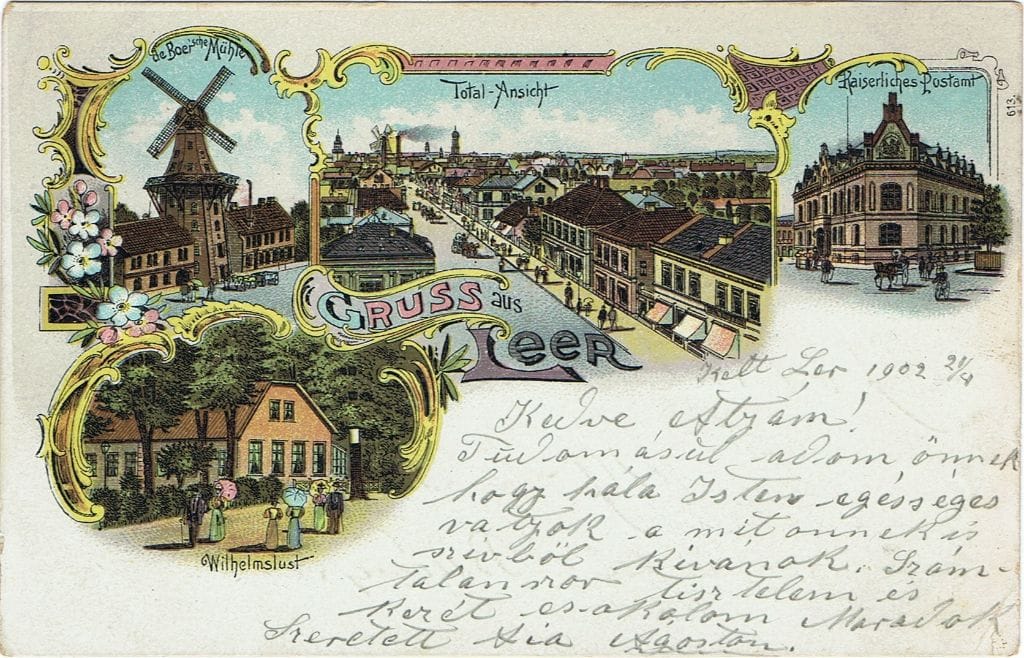 de Boer'sche Mühle
Total-Ansicht
Kaiserliches Postamt
613.
GRUSS aus
Leer
Wilhelmslust
Kelt Ler 1902 21/4
Kedve Atyám!
Tudomásul adom önnek
hogy hála Isten egésséges
vatyok a mit onnek is
szivböl kivánok. Szám-
talanszor tisztelem és
kezét csokolom Maradok
Szeretett fia Agoston.